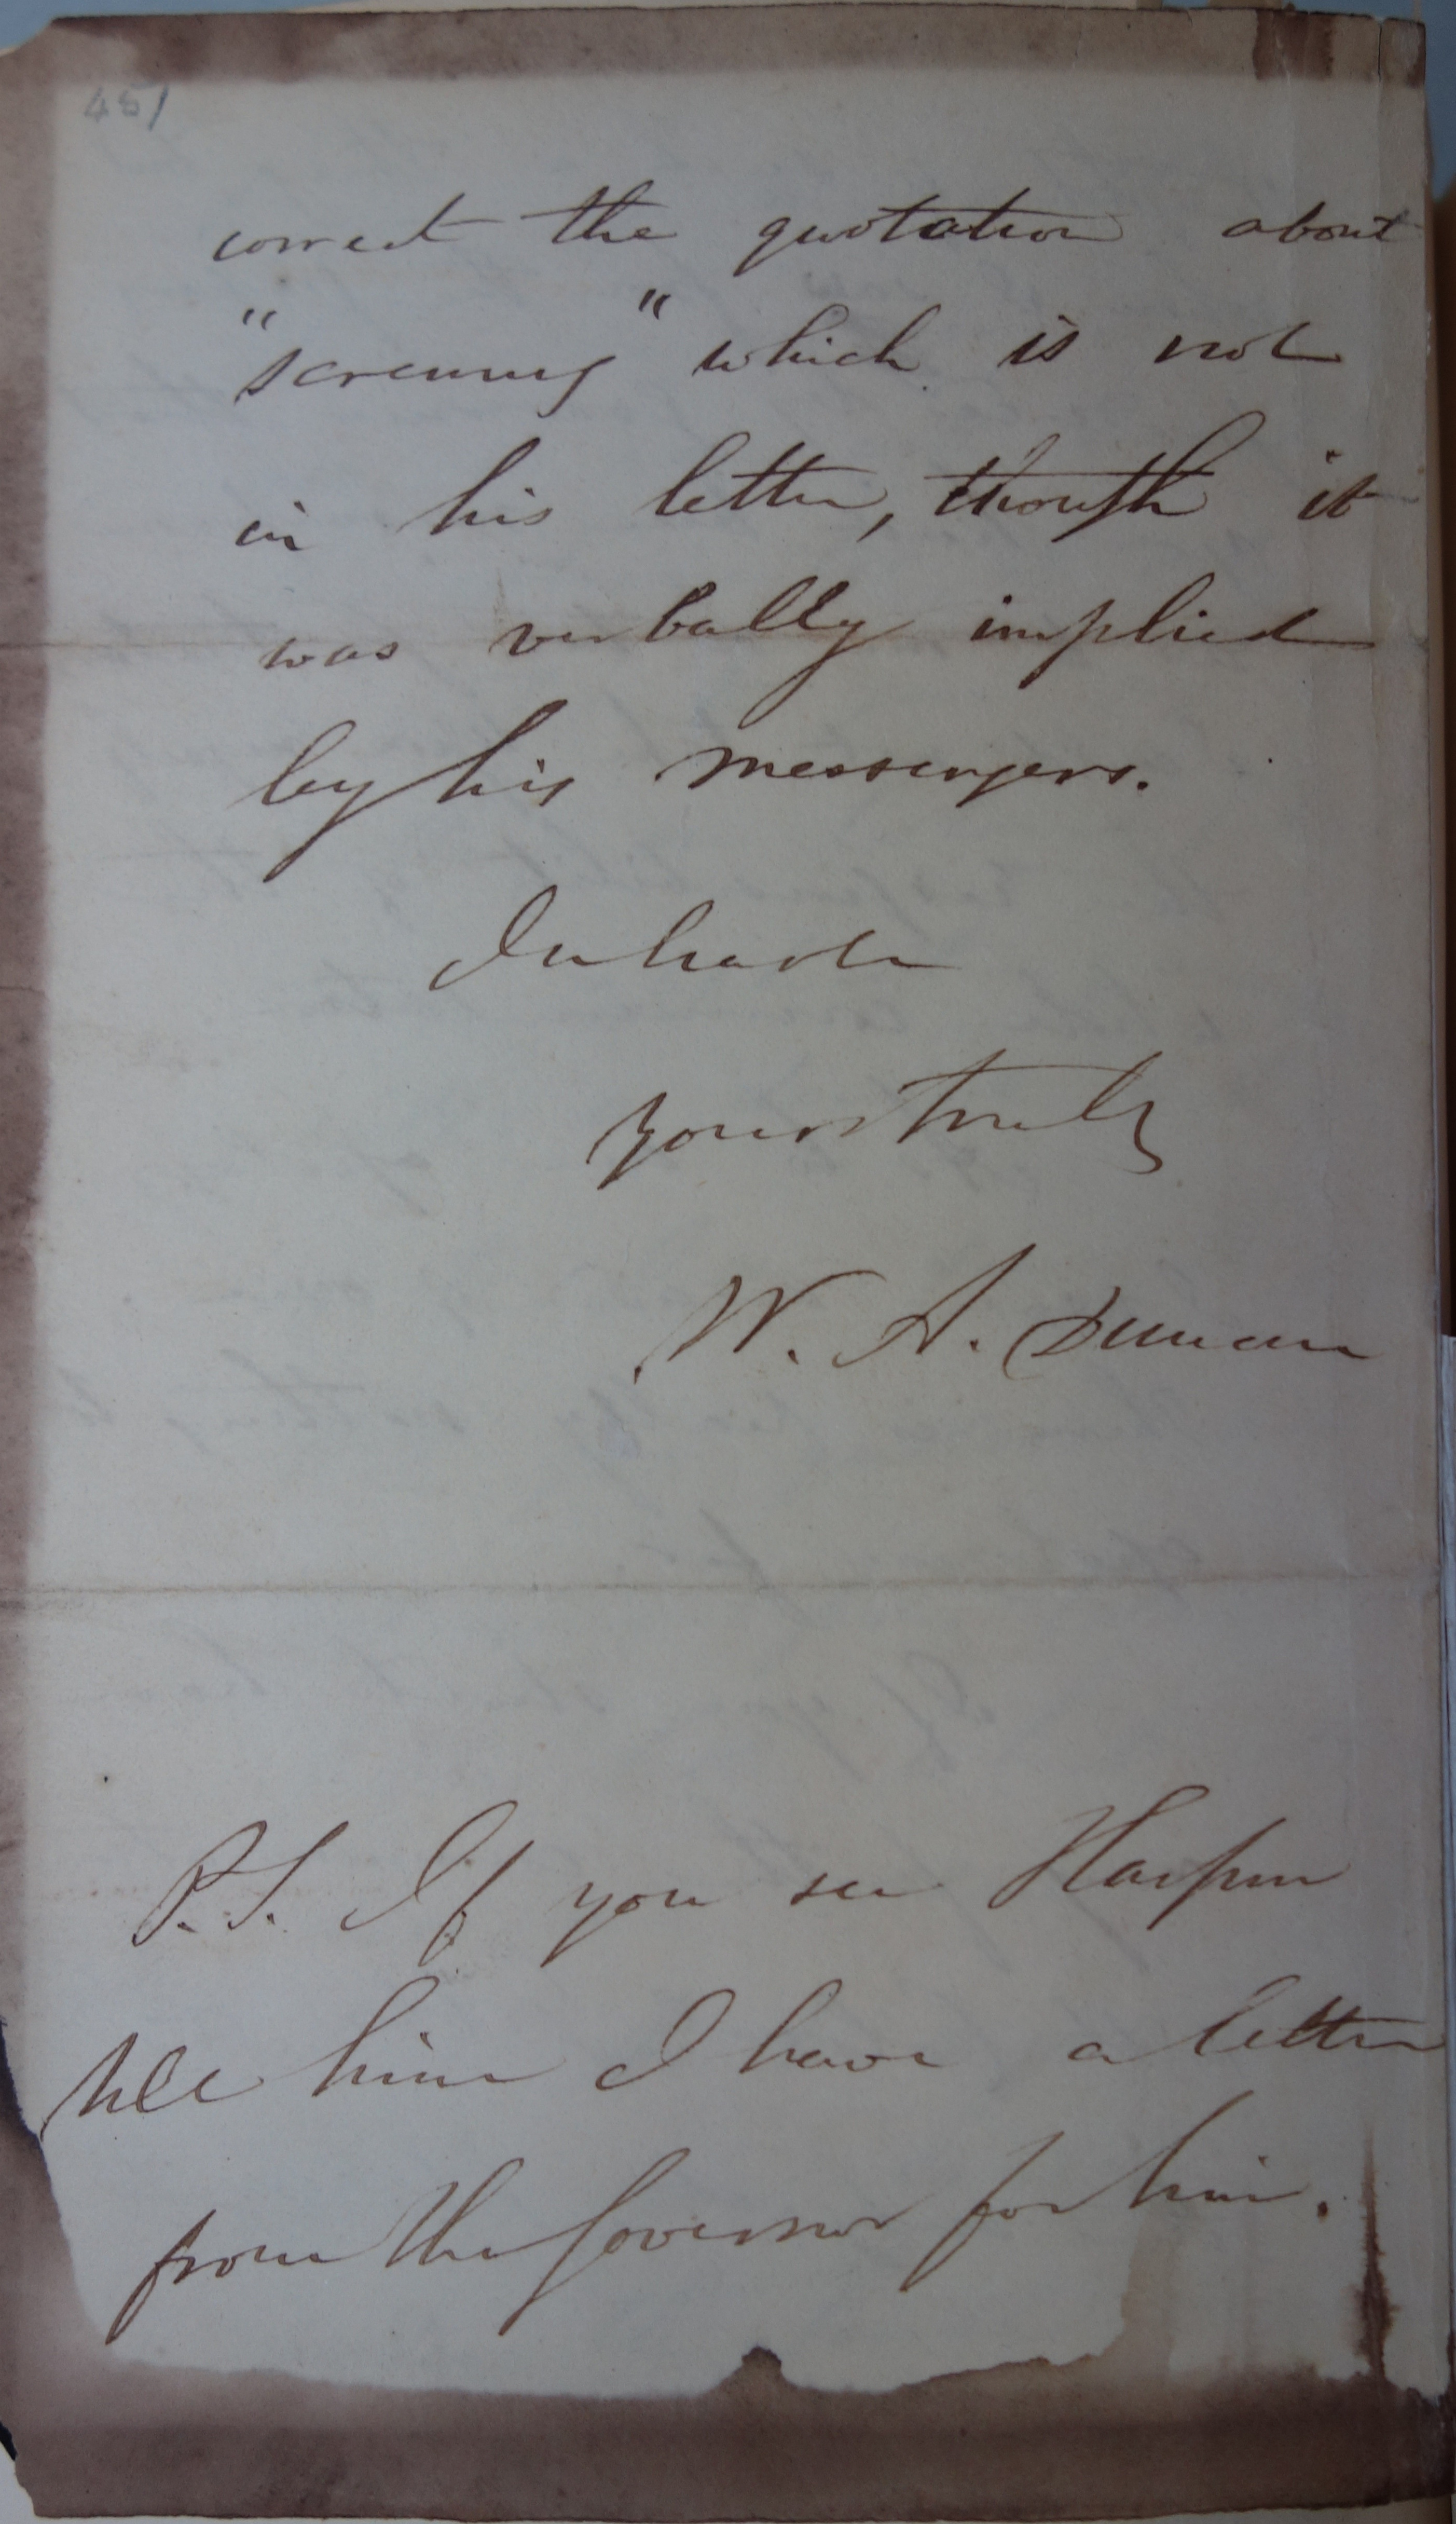 451
correct the quotation about
"screening" which is not
in his letter, though it
was verbally implied
by his messengers.
In haste
yours truly
W. A. Duncan
P.S. If you see Harpur
tell him I have a letter
from the Governor for him.